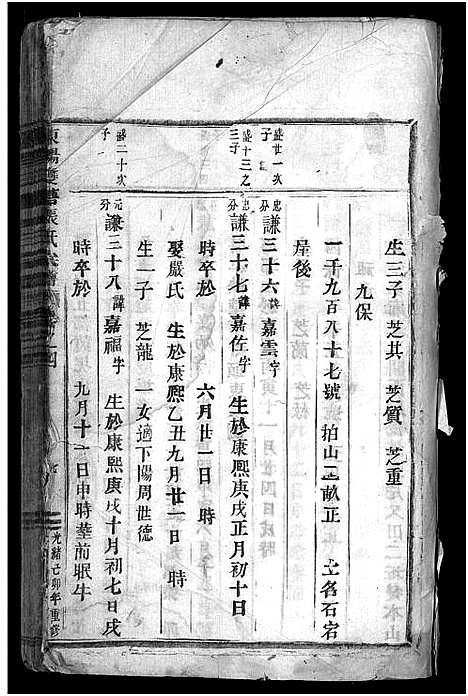 生三子 芝其 芝質 芝重
九保
一千九百八十七號 拍山二畝正 土名石宕
屋後
盛廿一次子
忠分 謙三十六 諱嘉雲 字
盛十三之三子
忠分 謙三十七 諱嘉佐 字 生於康熙庚戌正月初十日
時卒於 六月廿一日 時
娶嚴氏 生於康熙乙丑九月廿一日 時
生一子 芝龍 一女適下陽周世德
盛二十次子
元分 謙三十八 諱嘉福 字 生於康熙庚戌十月初七日戌
時卒於 九月十一日申時葬前眠牛
張氏宗譜
光緒己卯年重修